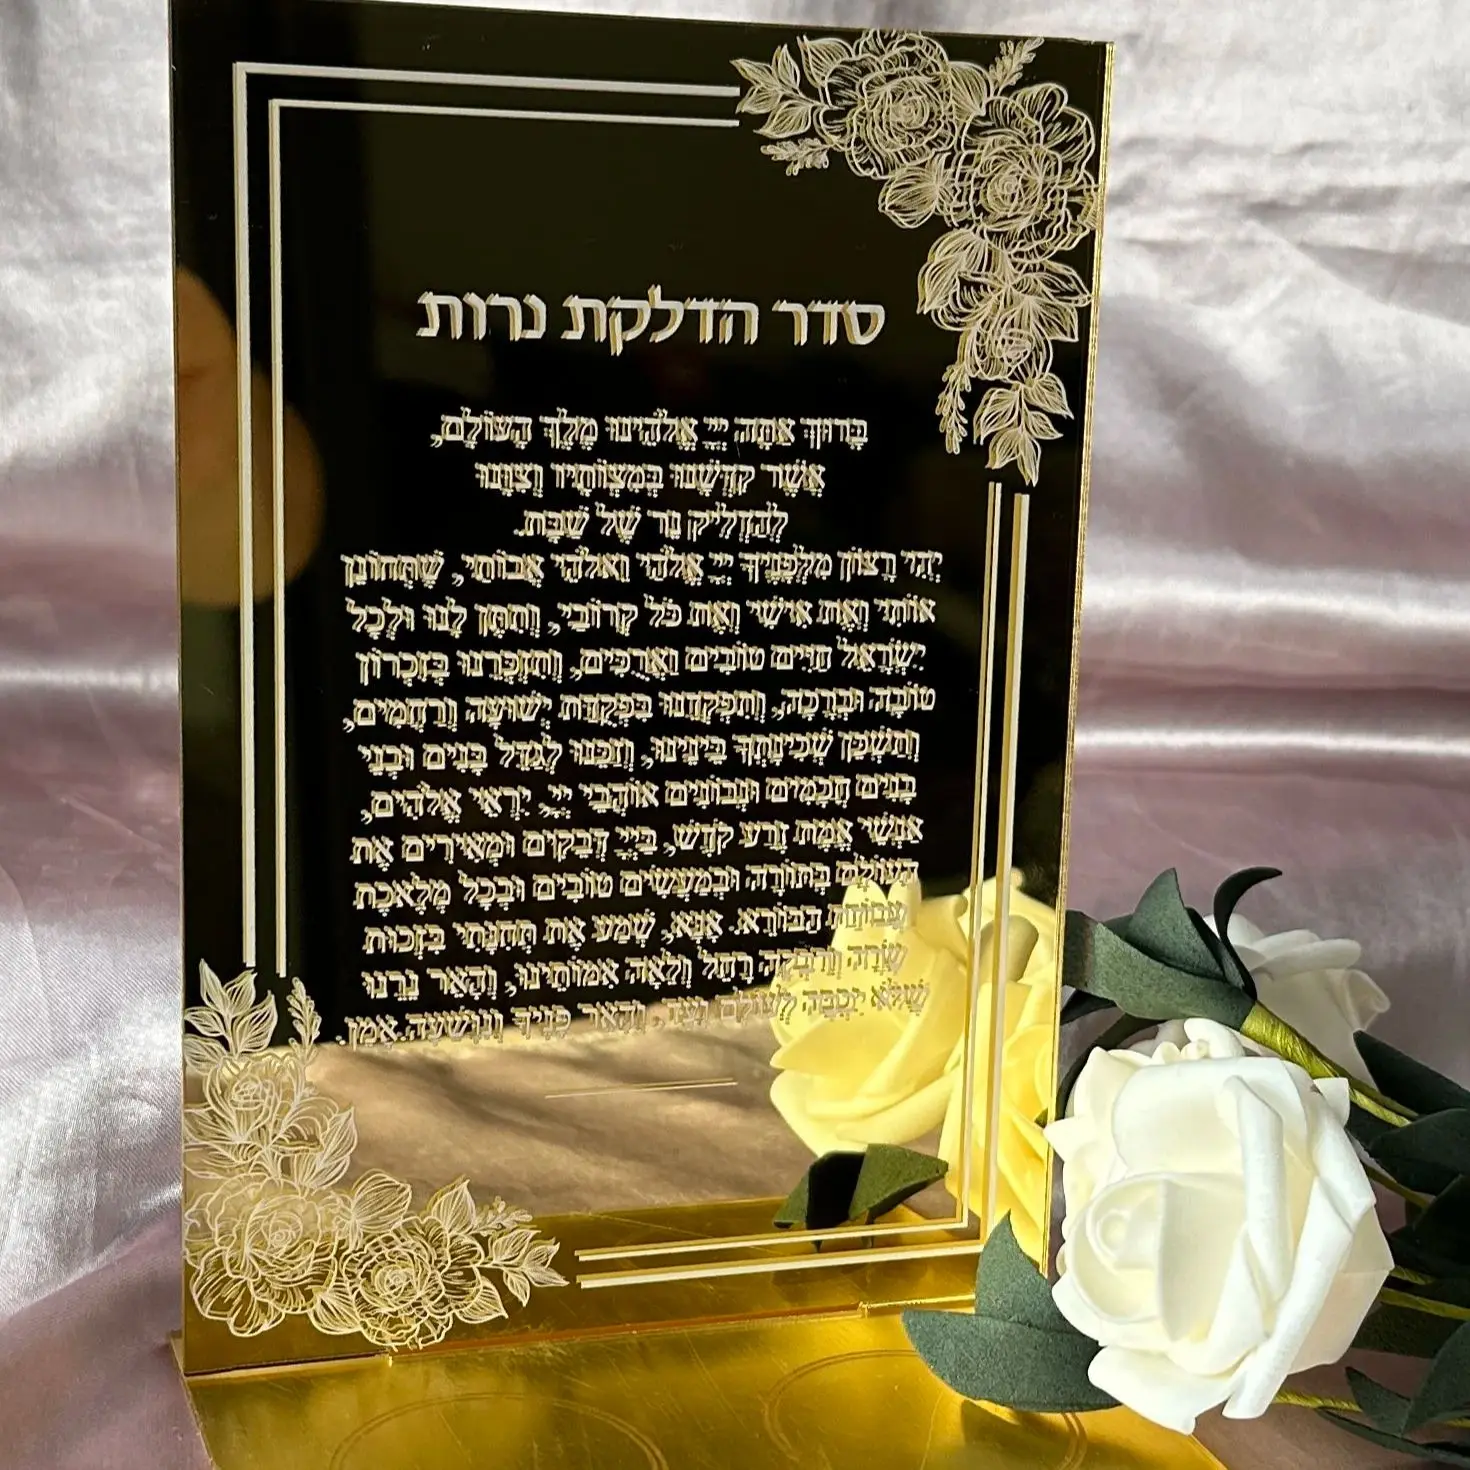 סדר הדלקת נרות
בָּרוּךְ אַתָּה יְיָ אֱלֹהֵינוּ מֶלֶךְ הָעוֹלָם,
אֲשֶׁר קִדְּשָׁנוּ בְּמִצְוֹתָיו וְצִוָּנוּ
לְהַדְלִיק נֵר שֶׁל שַׁבָּת.
יְהִי רָצוֹן מִלְּפָנֶיךָ יְיָ אֱלֹהַי וֵאלֹהֵי אֲבוֹתַי, שֶׁתְּחוֹנֵן
אוֹתִי וְאֶת אִישִׁי וְאֶת כֹּל קְרוֹבַי, וְתִתֵּן לָנוּ וּלְכָל
יִשְׂרָאֵל חַיִּים טוֹבִים וַאֲרֻכִּים, וְתִזְכְּרֵנוּ בְּזִכְרוֹן
טוֹבָה וּבְרָכָה, וְתִפְקְדֵנוּ בִּפְקֻדַּת יְשׁוּעָה וְרַחֲמִים,
וְתַשְׁכֵּן שְׁכִינָתְךָ בֵּינֵינוּ, וְזַכֵּנוּ לְגַדֵּל בָּנִים וּבְנֵי
בָנִים חֲכָמִים וּנְבוֹנִים אוֹהֲבֵי יְיָ, יִרְאֵי אֱלֹהִים,
אַנְשֵׁי אֱמֶת זֶרַע קֹדֶשׁ, בַּיְיָ דְּבֵקִים וּמְאִירִים אֶת
הָעוֹלָם בְּתוֹרָה וּבְמַעֲשִׂים טוֹבִים וּבְכָל מְלֶאכֶת
עֲבוֹדַת הַבּוֹרֵא. אָנָּא, שְׁמַע אֶת תְּחִנָּתִי בִּזְכוּת
שָׂרָה וְרִבְקָה רָחֵל וְלֵאָה אִמּוֹתֵינוּ, וְהָאֵר נֵרֵנוּ
שֶׁלֹּא יִכְבֶּה לְעוֹלָם וָעֶד, וְהָאֵר פָּנֶיךָ וְנִוָּשֵׁעָה.אָמֵן.